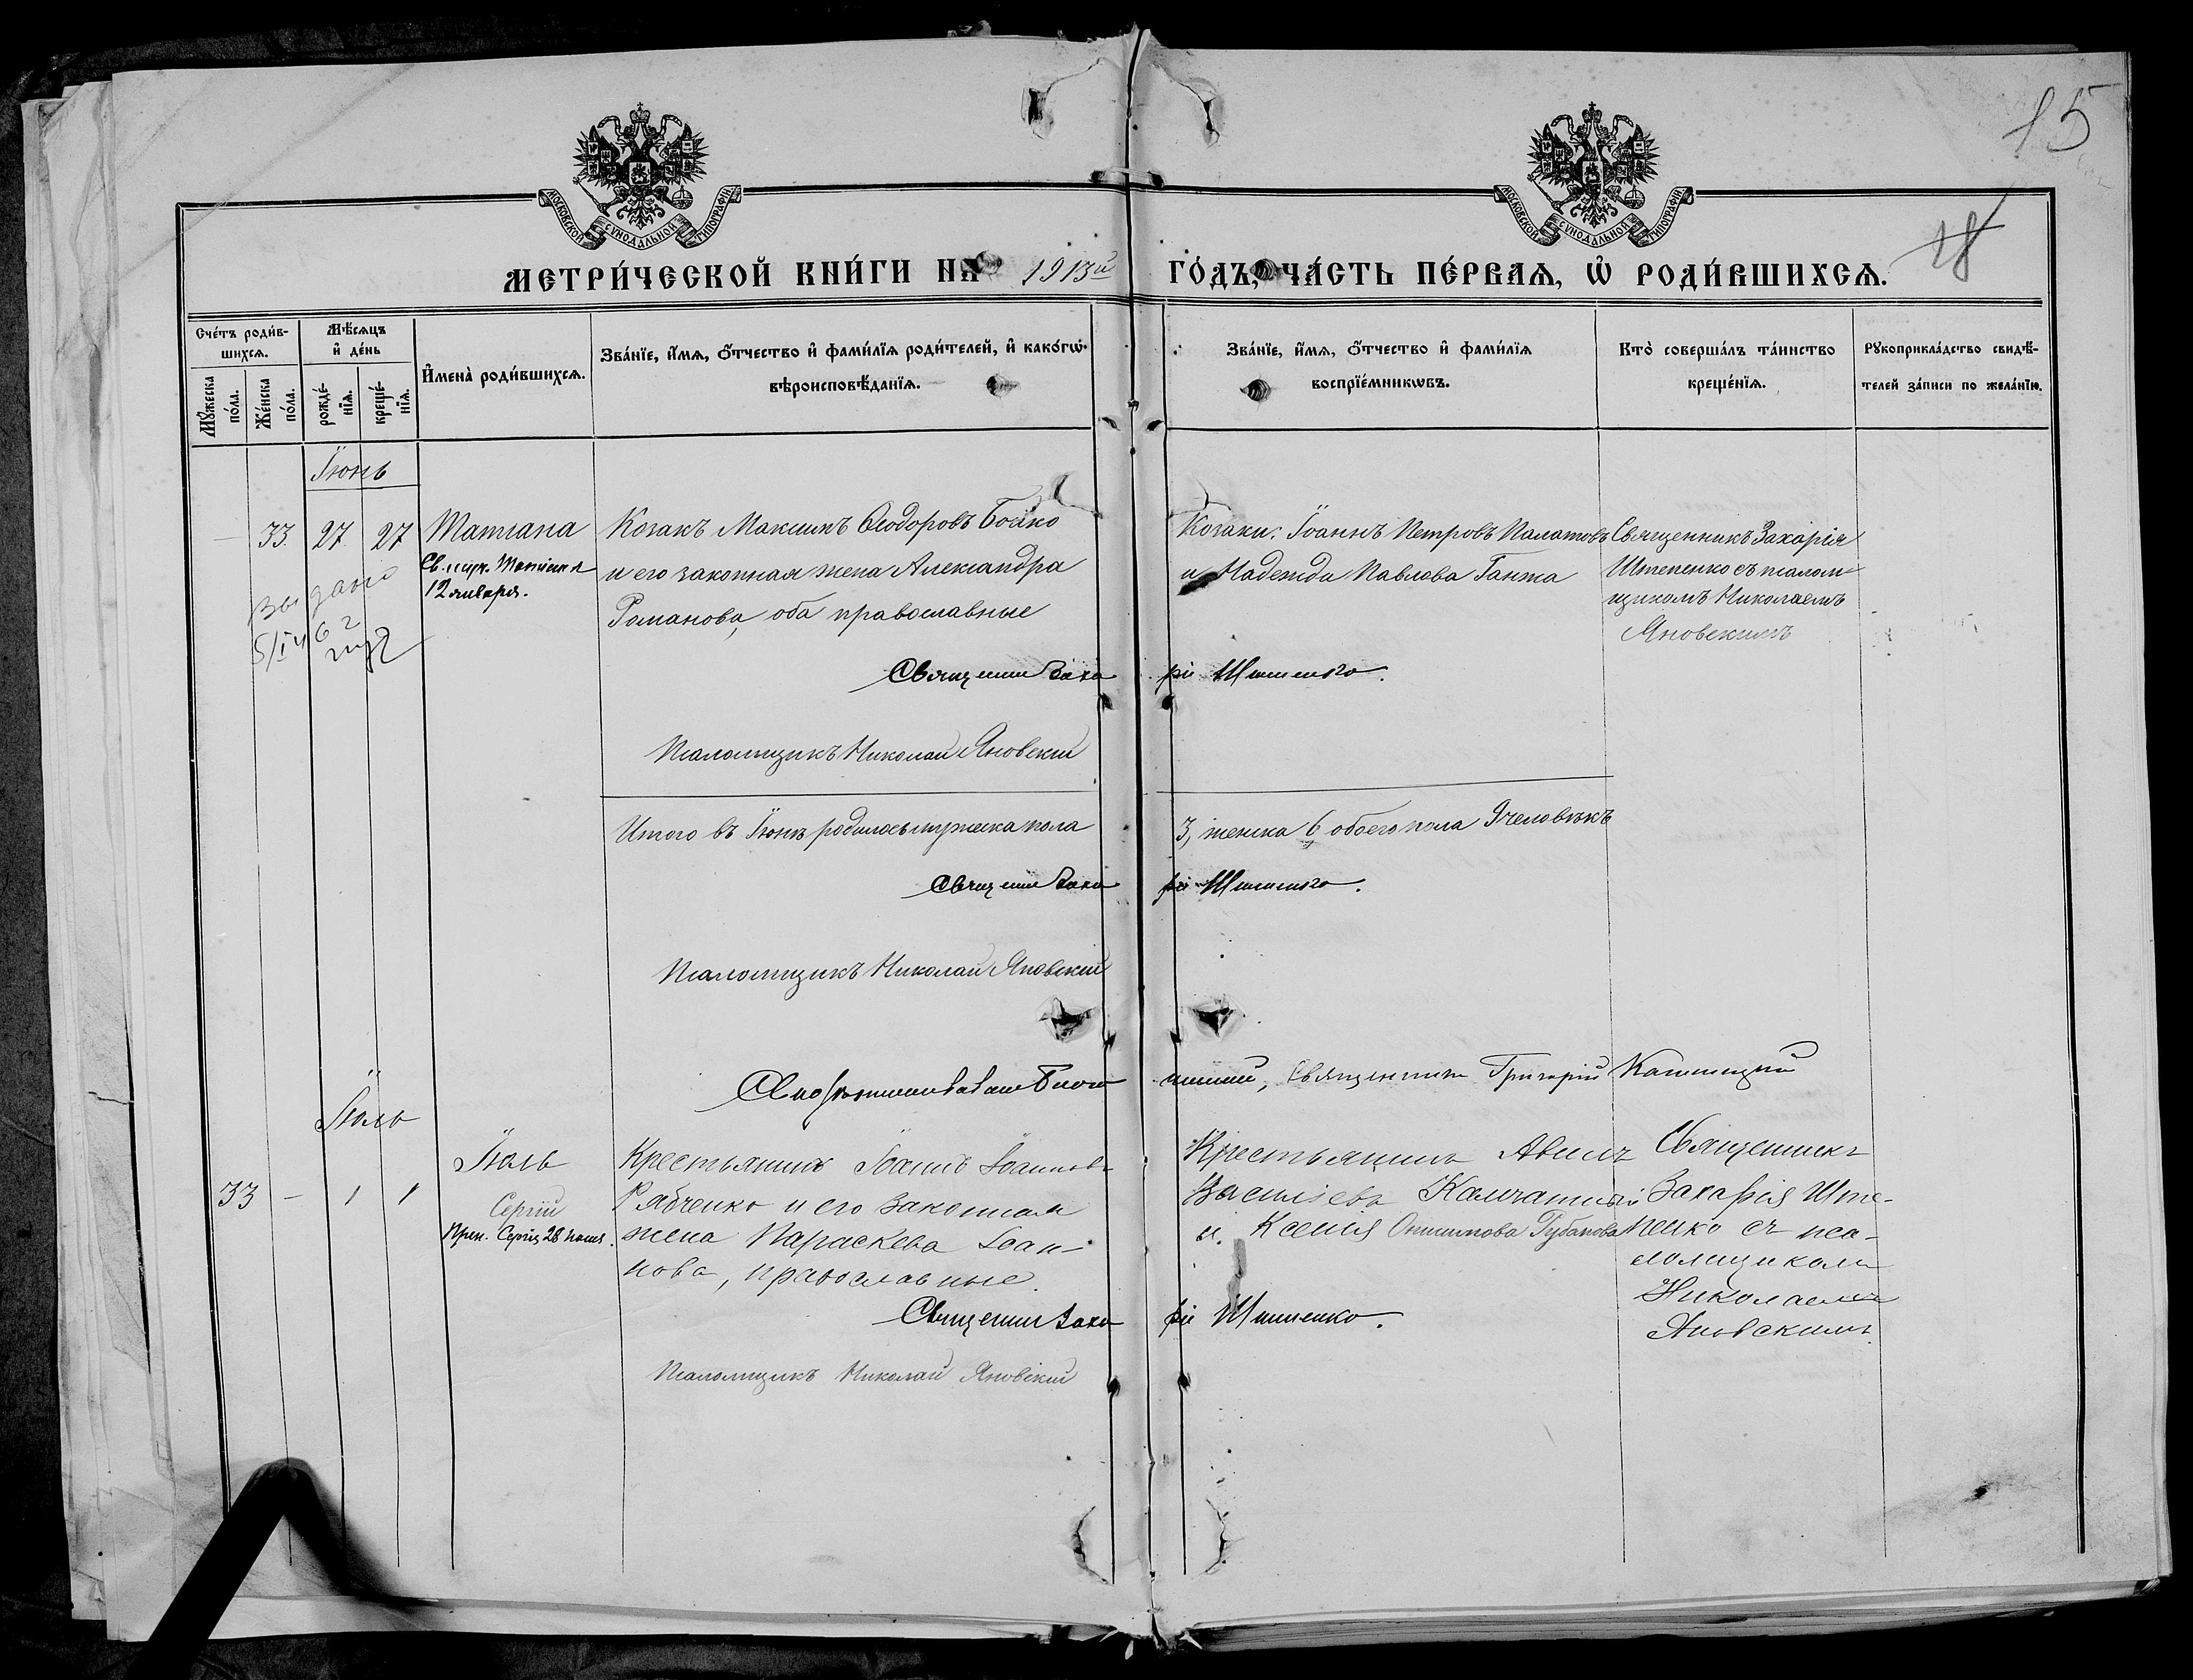 15
18
МОСКОВСКОЙ СѴНОДАЛЬНОЙ ТИПОГРАФІИ
МОСКОВСКОЙ СѴНОДАЛЬНОЙ ТИПОГРАФІИ
МЕТРИ́ЧЕСКОЙ КНИ́ГИ НА 1913й ГО́ДЪ, ЧА́СТЬ ПЕ́РВАЯ, Ѡ҆ РОДИ́ВШИХСѦ.
Сче́тъ роди́в-
шихсѧ.
Мꙋ́жеска по́ла.
Же́нска по́ла.
Мѣ́сѧцъ
и҆ де́нь
рожде́-
нїѧ.
креще́-
нїѧ.
И҆мена̀ роди́вшихсѧ.
Зва́нїе, и҆́мѧ, ѻ҆́тчество и҆ фами́лїѧ роди́телей, и҆ како́гѡ
вѣроисповѣ́данїѧ.
Зва́нїе, и҆́мѧ, ѻ҆́тчество и҆ фами́лїѧ
воспрїе́мникѡвъ.
Кто̀ соверша́лъ та́инство
креще́нїѧ.
Рꙋкоприкла́дство свидѣ́-
телей за́писи по жела́нїю.
Іюнь
33. 27 27 Татіана
Св. муч. Татіаны
12 января.
Выдано
Козакъ Максимъ Ѳеодоровъ Бойко
и его законная жена Александра
Романова, оба православные
Козаки: Іоаннъ Петровъ
и Надежда Павлова Ганжа
Священникъ Захарія
Штепенко съ псалом
щикомъ Николаемъ
Яновскимъ
Священникъ Захарія Штепенко.
Псаломщикъ Николай Яновскій
Итого въ Іюнѣ родилось мужеска пола 3, женска 6 обоего пола 9 человѣкъ
Священникъ Захарія Штепенко.
Псаломщикъ Николай Яновскій
Священникъ Григорій
Іюль
Іюль
33 – 1 1 Сергій
Преп. Сергія 28 
Крестьянинъ Іоаннъ Іоанновъ
Рябченко и его законная
жена Параскева Іоан-
нова, православные.
Крестьянинъ
Василіевъ
и Ксенія Онисимова Губанова
Священникъ
Захарія Ште-
пенко съ пса-
ломщикомъ
Николаемъ
Яновскимъ.
Священникъ Захарія Штепенко.
Псаломщикъ Николай Яновскій